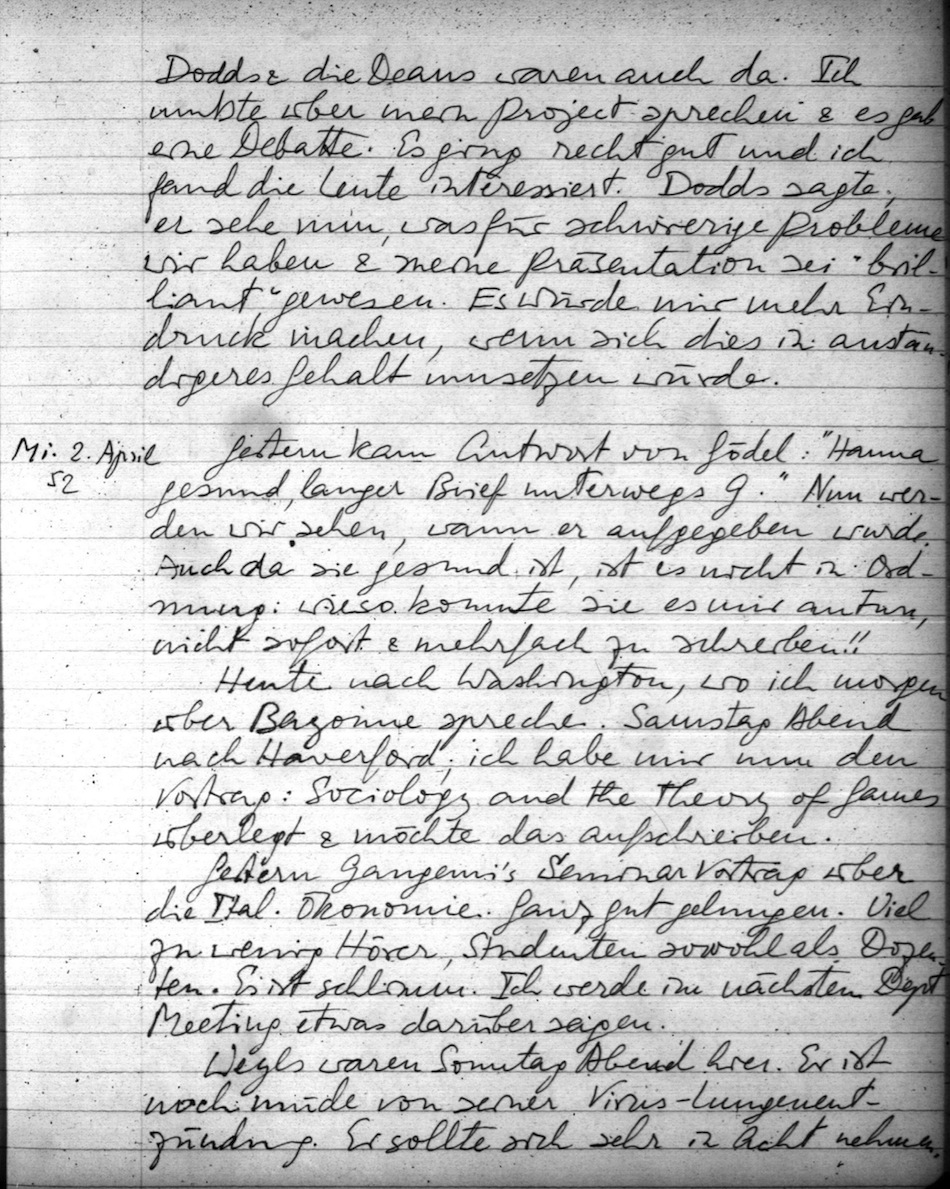 Dodds & die Deans waren auch da. Ich
mußte über mein Project sprechen & es gab
eine Debatte. Es ging recht gut und ich
fand die Leute interessiert. Dodds sagte,
er sehe nun, was für schwierige Probleme
wir haben & meine Präsentation sei "bril-
liant" gewesen. Es würde mir mehr Ein-
druck machen, wenn sich dies in anstän-
digeres Gehalt umsetzen würde.
Mi. 2. April
52
Gestern kam Antwort von Gödel: "Hanna
gesund, langer Brief unterwegs G." Nun wer-
den wir sehen, wann er aufgegeben wurde.
Auch da sie gesund ist, ist es nicht in Ord-
nung: wieso konnte sie es mir antun,
nicht sofort & mehrfach zu schreiben!!
Heute nach Washington, wo ich morgen
über Bayonne spreche. Samstag Abend
nach Haverford; ich habe mir nun den
Vortrag: Sociology and the Theory of Games
überlegt & möchte das aufschreiben.
Gestern Gangemi's Seminar Vortrag über
die Ital. Ökonomie. Ganz gut gelungen. Viel
zu wenig Hörer, Studenten sowohl als Dozen-
ten. Es ist schlimm. Ich werde im nächsten Dept
Meeting etwas darüber sagen.
Weyls waren Sonntag Abend hier. Er ist
noch müde von seiner Virus-Lungenent-
zündung. Er sollte sich sehr in Acht nehmen.